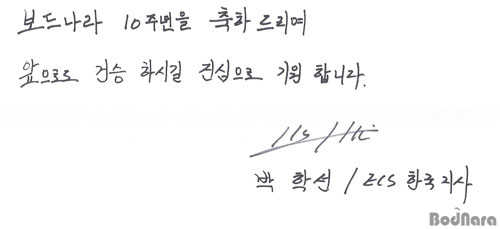 보드나라 10주년을 축하 드리며
앞으로도 건승 하시길 진심으로 기원 합니다.
박 학선 / ECS 한국지사
BodNara